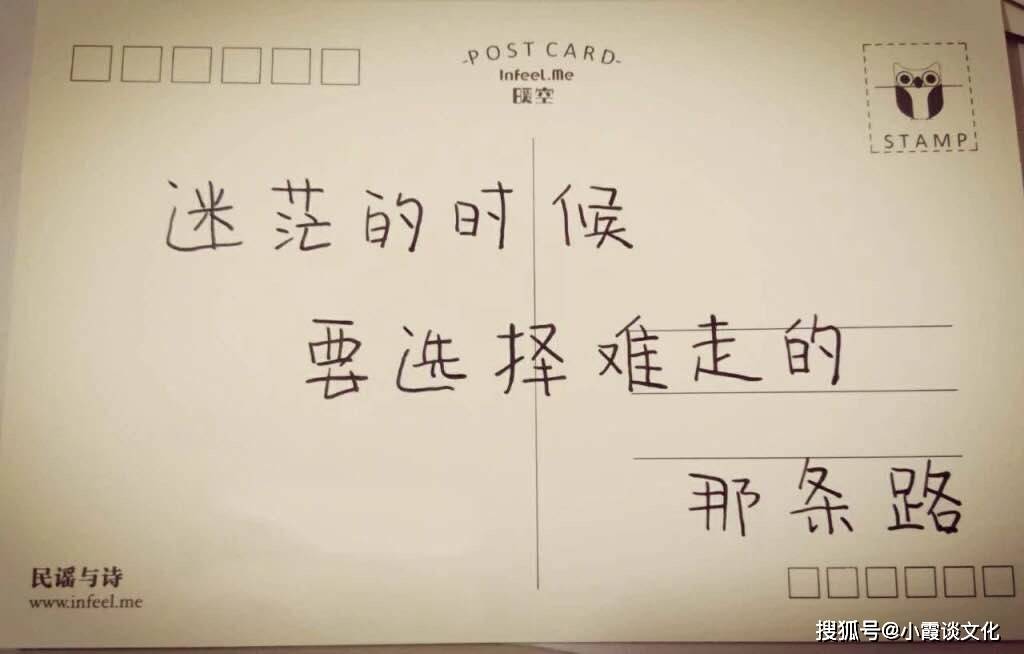 POST CARD
Infeel.Me
暖空
STAMP
迷茫的时候
要选择难走的
那条路
民谣与诗
www.infeel.me
搜狐号@小霞谈文化